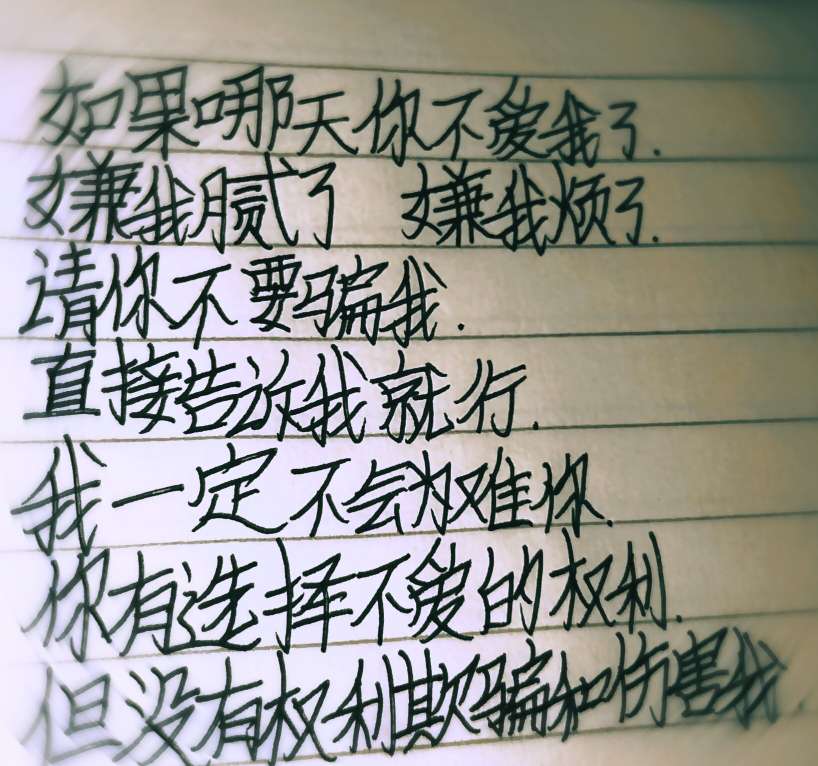 如果哪天你不爱我了.
嫌我腻了 嫌我烦了.
请你不要骗我.
直接告诉我就行.
我一定不会为难你.
你有选择不爱的权利.
但没有权利欺骗和伤害我.